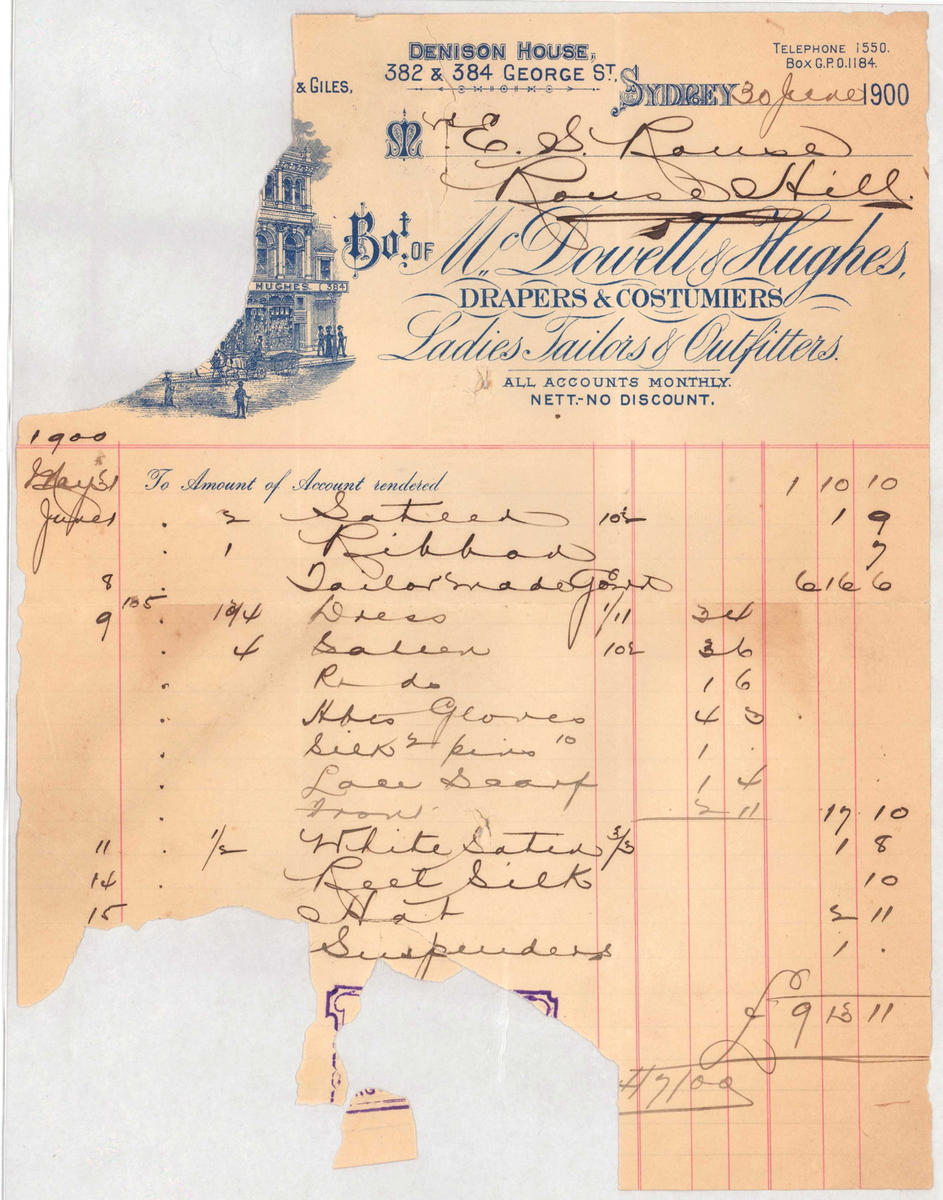 DENISON HOUSE,
382 & 384 GEORGE ST.,
TELEPHONE 1550.
BOX G.P.O. 1184.
& GILES,
SYDNEY 30 June 1900
Mr. E. S. Rouse
Rouse Hill
HUGHES 384
Bot. OF McDowell & Hughes,
DRAPERS & COSTUMIERS
Ladies Tailors & Outfitters.
ALL ACCOUNTS MONTHLY.
NETT.-NO DISCOUNT.
1900
May 31 To Amount of Account rendered 1 10 10
June 1 2 Sateen 10½ 1 9
1 Ribbon 7
8 Tailor made 6 16 6
9 Dress 1/11
4 Sateen 10½ 3 6
1 6
Gloves 4 3
Silk 2 pins 10 1 .
Lace Scarf 1 4
2 11 17 10
11 1/2 White Sateen 3/3 1 8
14 Reel Silk 10
15 Hat 2 11
Suspenders 1 .
£ 9 13 11
4/7/00